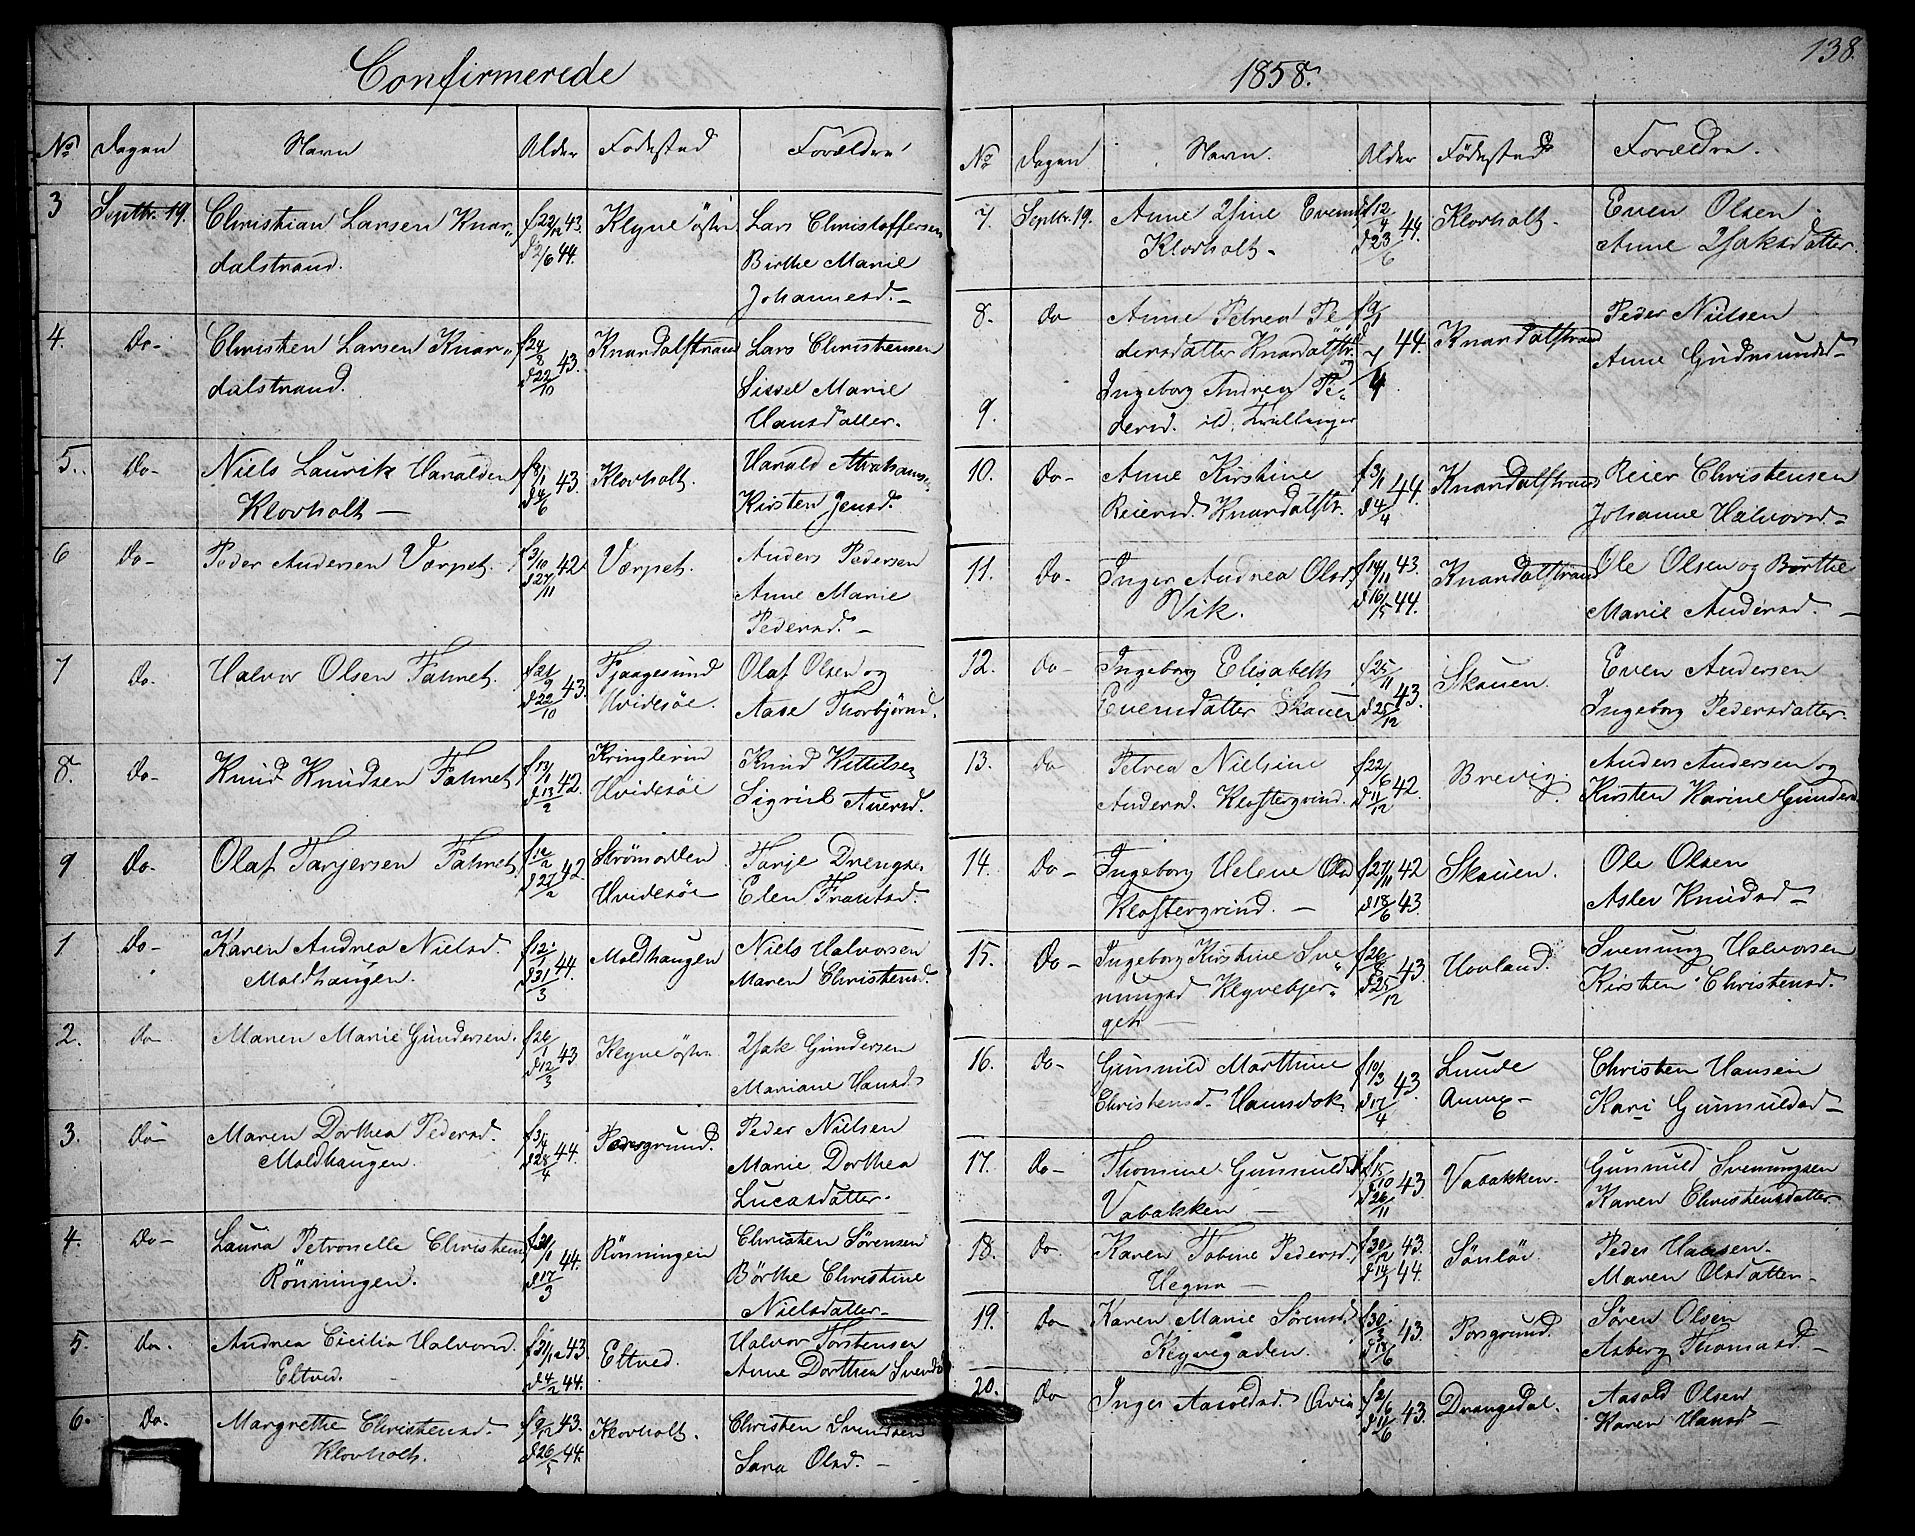 Confirmerede
No Dagen Navn Alder Fødested Forældre
3 Septbr. 19. Christian Larsen Knar- f 22/12 43. Klyve østre Lars Christoffersen
dalstrand. d 2/6 44. Birthe Marie
Johannesd.-
4. Do- Christen Larsen Knar- f 24/8 43. Knardalstrand Lars Christensen
dalstrand. d 22/10 Sissel Marie
Hansdatter.
5. Do- Niels Laurik Haralden f 8/1 43. Klovholt. Harald Abrahamsen
Klovholt - d 4/6 Kirsten Jensd.
6 Do- Peder Andersen Værpet. f 3/10 42 Værpet. Anders Pedersen
d 27/11 Anne Marie
Pedersd. -
7 Do. Halvor Olsen Fahnet. f 21/9 43. Fjaagesund Olaf Olsen og
d 22/10 Hvidesøe. Aase Thorbjørnd.
8. Do- Knud Knudsen Fahnet 42. Kringlerin Knud Kittilsen
d 13/2 Hvidesøe Sigrid Aversd.
9 Do- Olaf Tarjersen Fahnet f 12/2 42 Strømodden Tarje Drengsen
d 27/2 Hvidesøe Elen Frantsd.
1 Do- Karen Andrea Nielsd. f 12/1 44. Moldhaugen Niels Halvorsen
Moldhaugen. d 31/3 Maren Christensd.
2. Do Maren Marie Gundersen. f 26/1 43 Klyve østre Isak Gundersen
d 12/3 Mariane Hansd.
3. Do- Maren Dorthea Pedersd. f 3/4 44. Porsgrund. Peder Nielsen
Moldhaugen. d 28/4 Marie Dorthea
Lucasdatter.
4. Do- Laura Petronelle Christensd 44. Rønningen Christen Sørensen
Rønningen. d 17/3 Børthe Christine
Nielsdatter-
5. Do. Andrea Cicilia Halvorsd. f 31/12 43 Eltved. Halvor Torstensen
Eltved. d 4/2 44. Anne Dorthea Svends
6. Do. Margrethe Christensd. f 9/12 43. Klovholt. Christen Svendsen
Klovholt. d 26/5 44. Sara Olsd. -
1858. 138.
No Dagen Navn. Alder Fødested Forældre.
7. Septbr. 19. Anne Isine Evensd f 12/4 44. Klovholt. Even Olsen
Klovholt- d 23/6 Anne Isaksdatter.
8. Do Anne Petrea Pe- f 9/1 44. Knardalstrand Peder Nielsen
dersdatter Knardalstr. og d 7/4 Anne Gudmundsd-
9. Ingeborg Andrea Pe-
dersd. ibd. Tvillinger
10. Do- Anne Kirstine f 3/1 44. Knardalstrand Reier Christensen
Reiersd. Knardalstr. d 4/4 Johanne Halvorsd-
11. Do- Inger Andrea Olsd. f 14/11 43. Knardalstrand Ole Olsen og Børthe
Vik. d 16/5 44. Marie Andersd. -
12. Do- Ingeborg Elisabeth f 25/11 43. Skauen. Even Andersen
Evensdatter Skauen d 25/12 Ingeborg Pedersdatter.
13. Do Petrea Nielsine f 22/6 42. Brevig. Anders Andersen og
Andersd. Klostergrind. d 11/12 Kirsten Karine Gunders
14. Do- Ingeborg Helene Olsd f 27/11 42 Skauen. Ole Olsen
Klostergrind. - d 18/6 43. Aslev Knudsd-
15. Do- Ingeborg Kirstine Sve f 26/8 43. Hovland. Svenung Halvorsen
nungsd Klyvebjer- d 25/12 Kirsten Christensd.
get -
16. Do- Gunnild Marthine f 10/3 43. Lunde Christen Hansen
Christensd. Hamsdok d 17/4 Annex- Kari Gunnuldsd-
17. Do- Thomine Gunnuldsd. f 15/10 43. Vabakken. Gunnuld Svenungsen
Vabakken - d 26/11 Karen Christensdatter
18. Do. Karen Tobine Pedersd. f 30/12 43. Sønløi Peder Hansen.
Hegna - d 14/1 44. Maren Olsdatter-
19. Do- Karen Marie Sørensd. f 30/3 43. Porsgrund. Søren Olsen
Klyvegaden. d 18/6 Asberg Thomasd-
20. Do Inger Aasoldsd. f 2/6 43. Drangedal. Aasold Olsen
d 11/6 Karen Hansd-